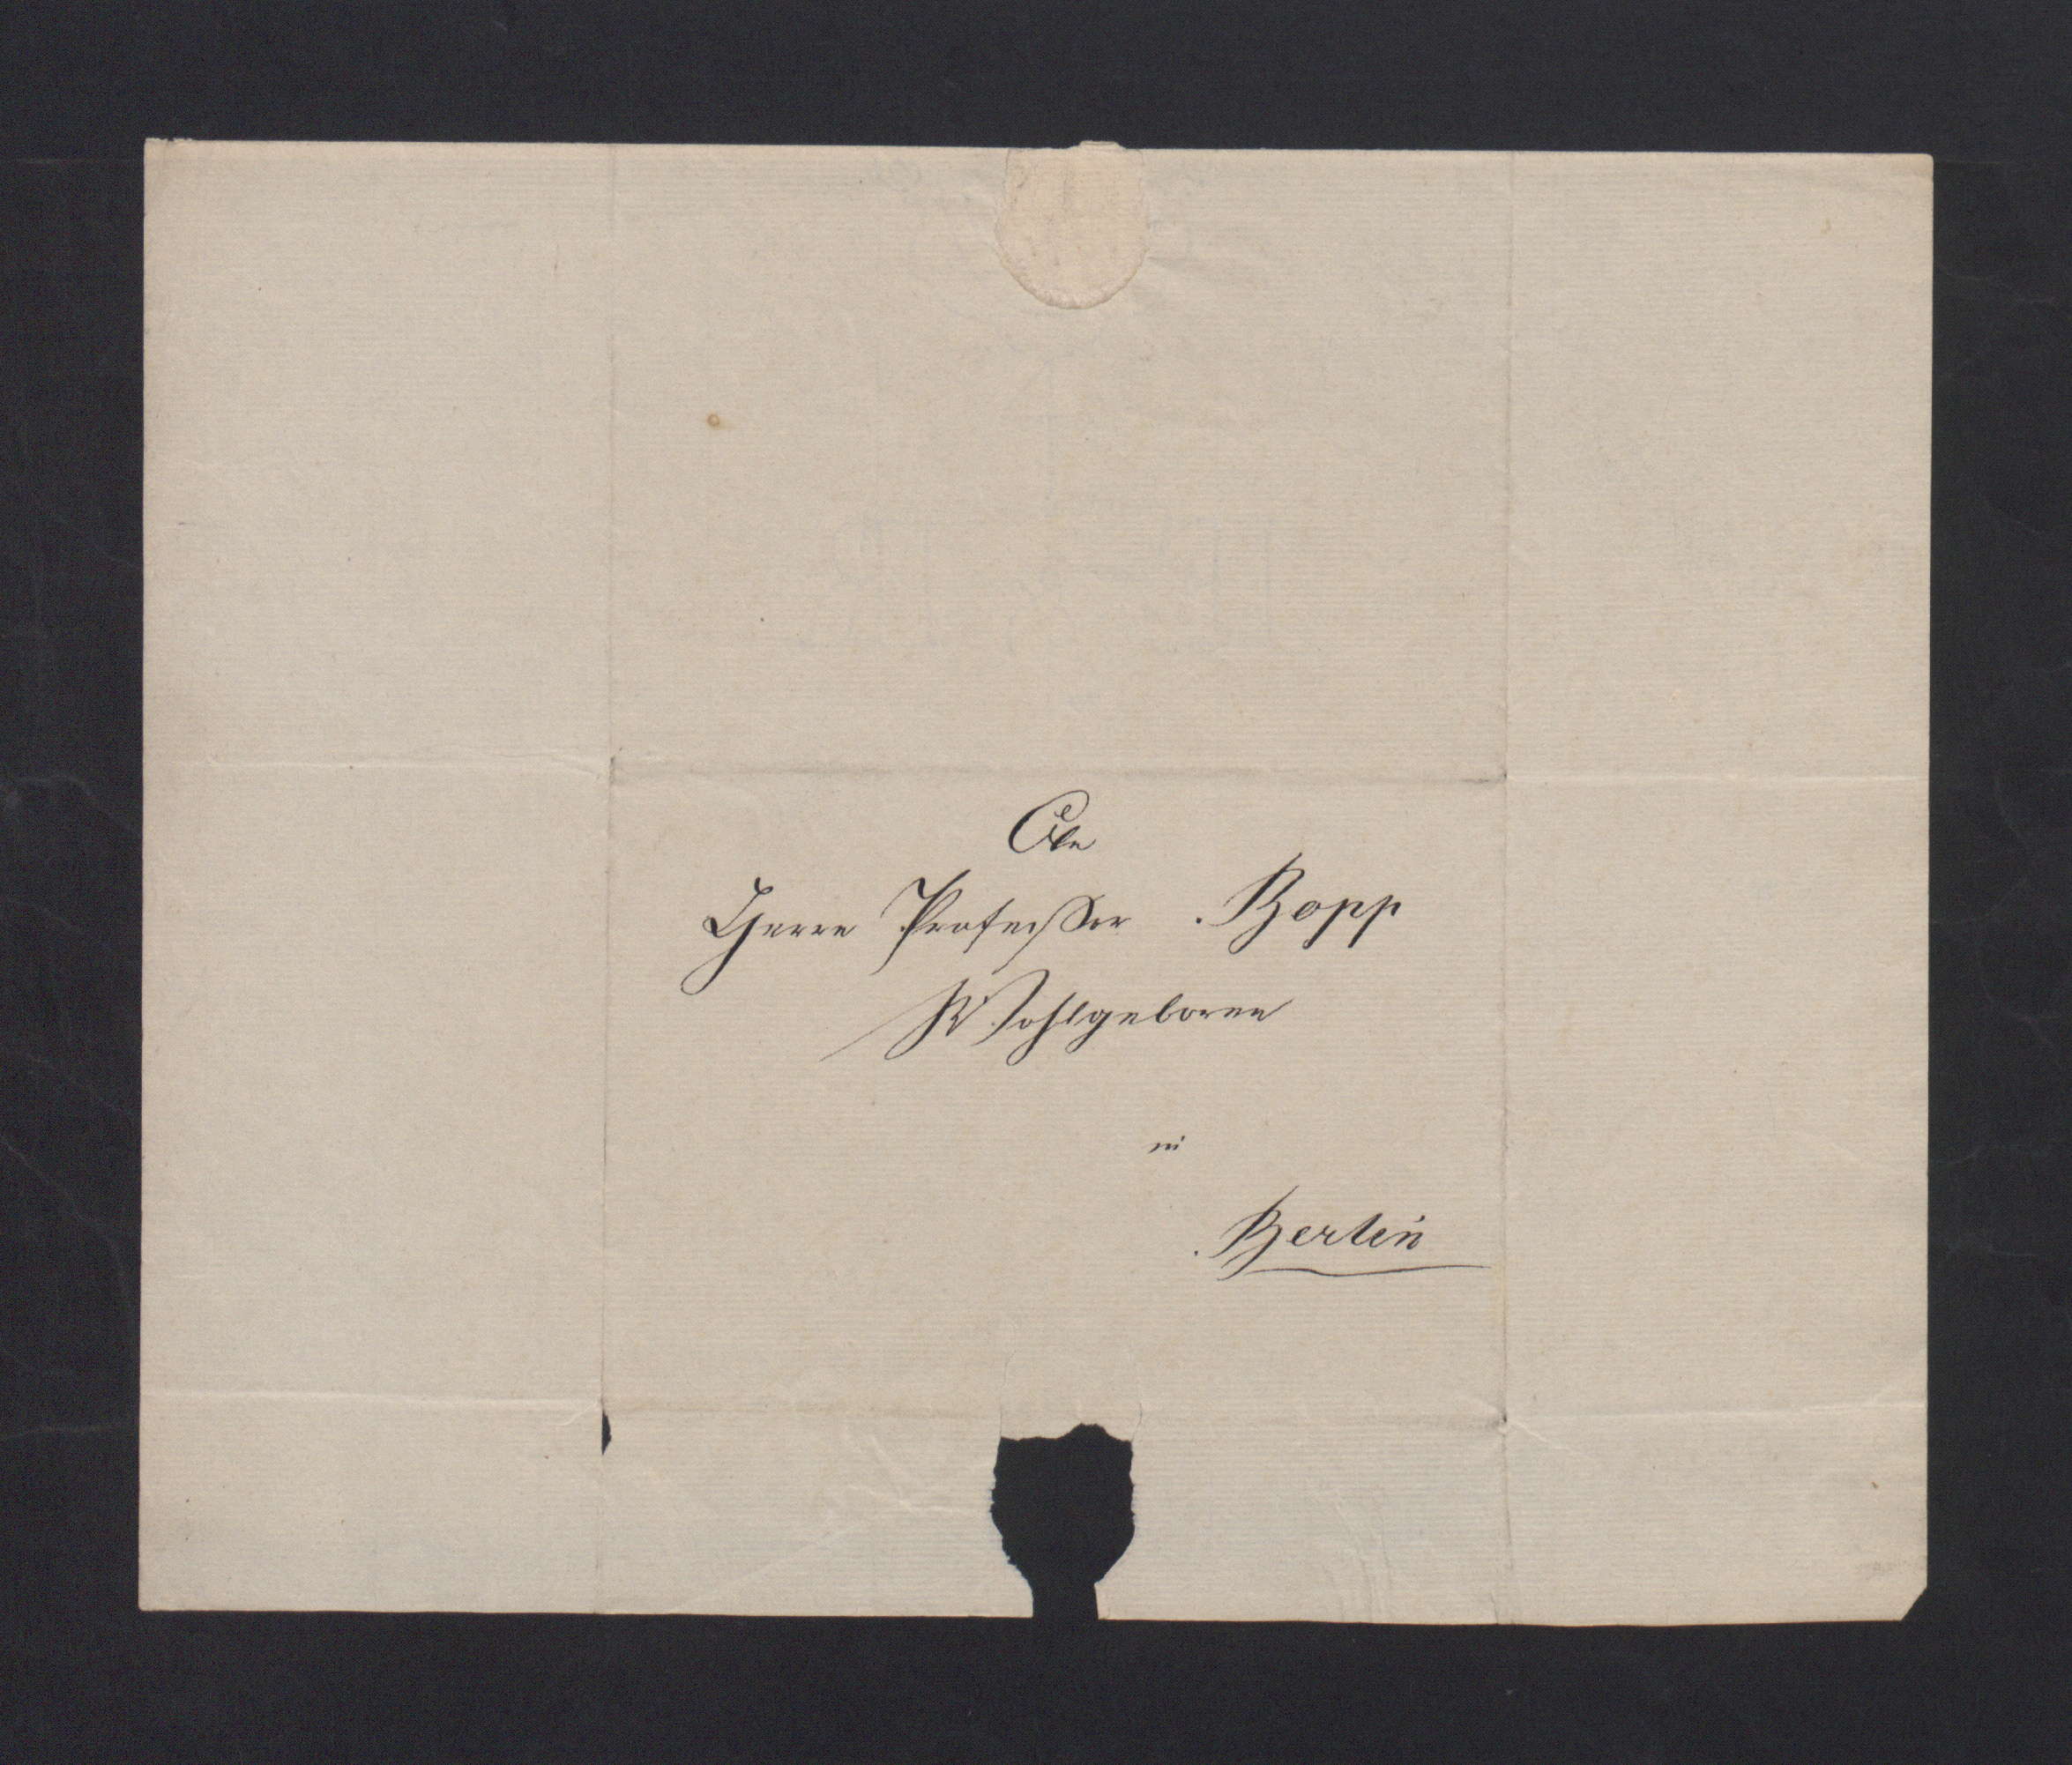 An
Herrn Professor Bopp
Wohlgeboren
in
Berlin